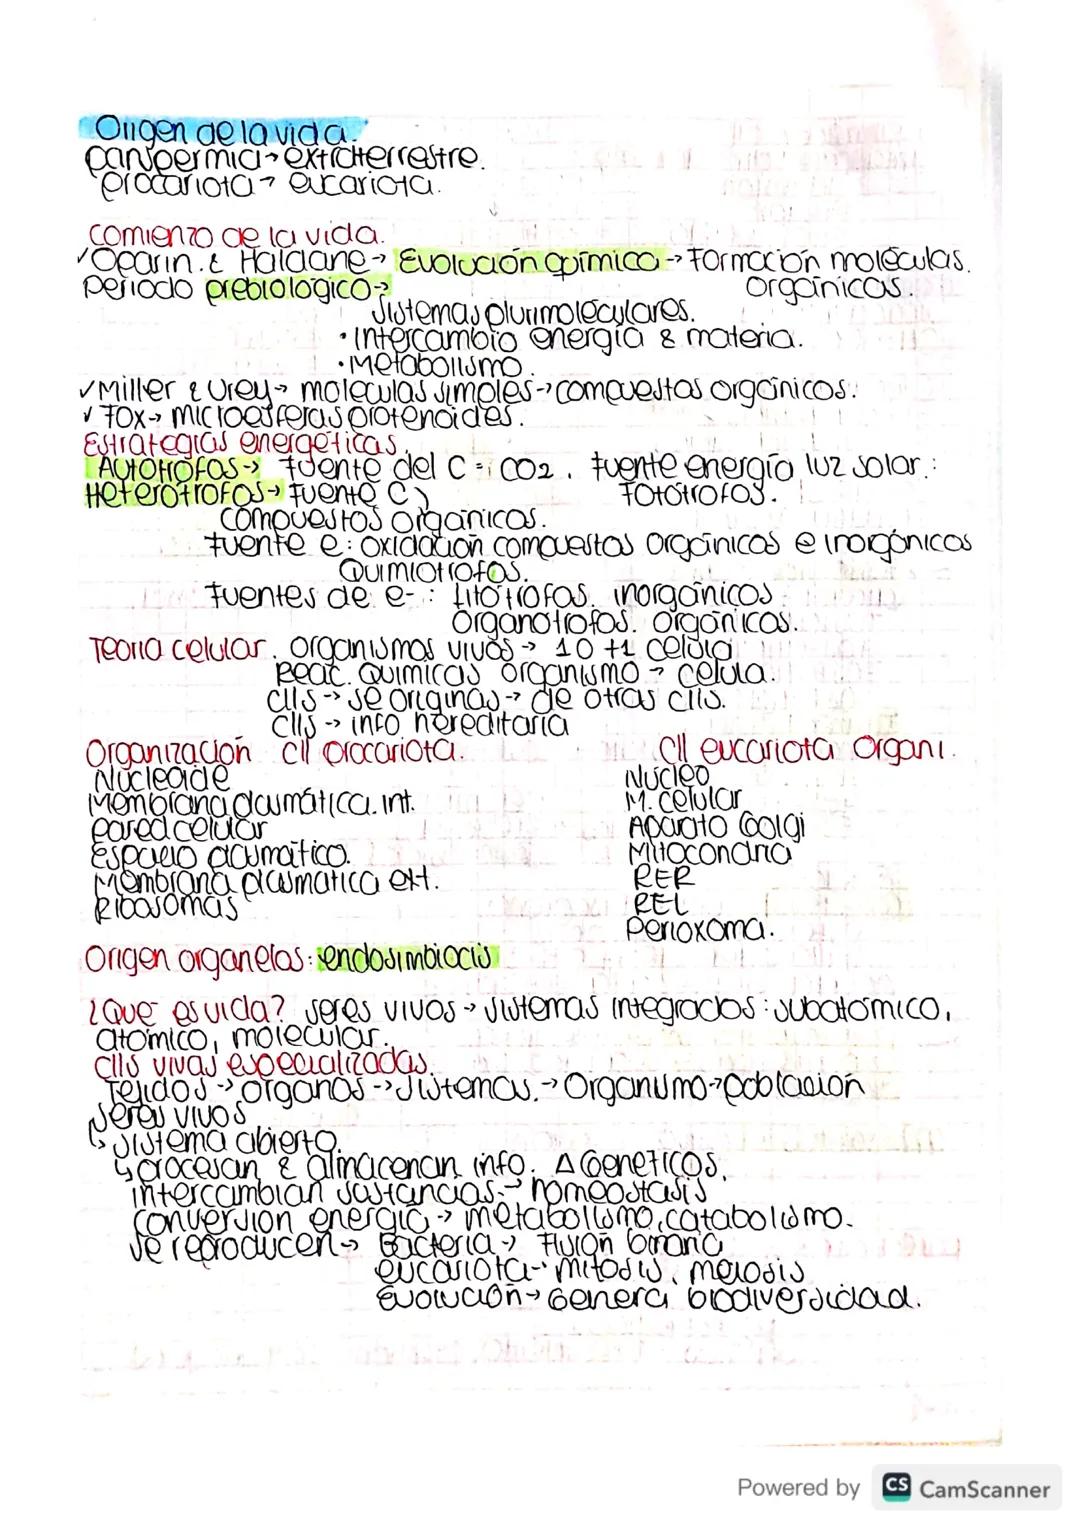 Origen de la vida.
panspermia → extraterrestre.
procariota → eucariota.
Comienzo de la vida.
✓Oparin & Haldane → Evolución química → Formación moléculas.
Periodo prebiológico → orgánicas.
sistemas plurimoleculares.
· Intercambio energía & materia.
· Metabolismo.
✓Miller & Urey → moleculas simples → compuestos orgánicos.
✓ Fox → microesferas protenoides.
Estrategias energéticas.
Autotrofas → fuente del C = CO2. fuente energía luz solar.:
Heterótrofos → fuente C Fotótrofos.
compuestos orgánicos.
fuente e: oxidación compuestos orgánicos e inorgánicos
Quimiotrofos.
fuentes de e-: litótrofas. inorgánicos
organotrofos. orgánicos.
Teoria celular. organismos vivos → 1 o +1 célula
Reac. Quimicas organismo → celula.
clls → se originas → de otras clls.
clls → info hereditaria
Organización cll procariota. Cll eucariota Organi.
Nucleoide Núcleo
Membrana plasmática. int. M. celular
pared celular Aparato Golgi
Espacio plasmático. Mitocondria
Membrana plasmatica ext. RER
Ribosomas REL
Perioxoma.
Origen organelas: endosimbiocis
¿Que es vida? seres vivos → sistemas integrados: subatómico,
atómico, molecular.
clls vivas especializadas.
Tejidos → organos → sistemas. → Organismo → población
seres vivos
↳ sistema abierto.
↳ procesan & almacenan info. Δ Geneticos.
intercambian sustancias. → homeostasis
conversion energia → metabolismo, catabolismo.
se reproducen → Bacteria → fision binaria
eucariota → mitosis, meiosis
Evolución → Genera biodiversidad.
Powered by CS CamScanner